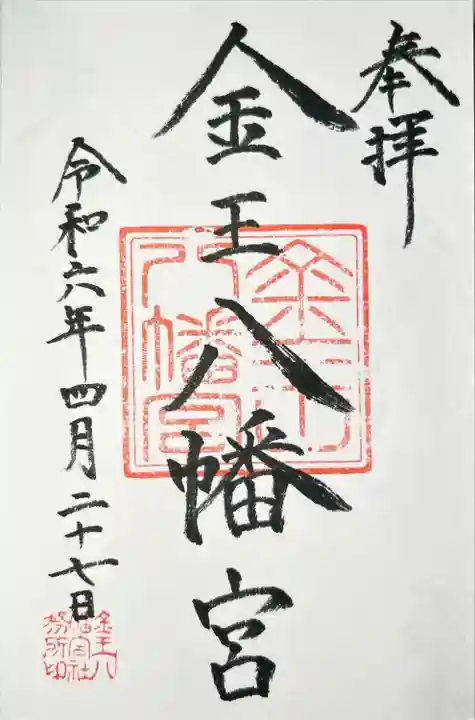 奉拝
金王八幡宮
令和六年四月二十七日
金王八
幡宮社
務所印